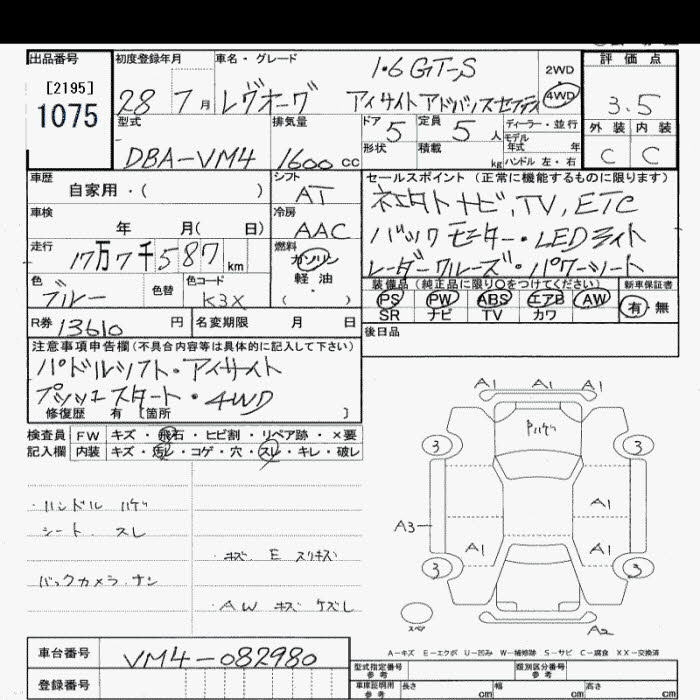 出品番号
[2195]
1075
初度登録年月
28 7月
車名・グレード
レヴォーグ
1.6 GT-S
アイサイトアドバンスセフティ
2WD
4WD
評価点
3.5
外装 内装
C C
型式
DBA-VM4
排気量
1600 cc
ドア 5
定員 5人
形状
積載 kg
ディーラー・並行
モデル年式 年
ハンドル 左・右
車歴
自家用・( )
シフト
AT
車検
年 月( 日)
冷房
AAC
走行
17万7千587km
燃料
ガソリン
軽油
( )
色
ブルー
色替
色コード
K3X
R券 13610円
名変期限 月 日
セールスポイント(正常に機能するものに限ります)
ネエタトナビ,TV,ETC
バックモニター・LEDライト
レーダークルーズ・パワーシート
装備品(純正品に限り○をつけてください)
PS PW ABS エアB AW
SR ナビ TV カワ
新車保証書
有・無
後日品
注意事項申告欄(不具合内容等は具体的に記入して下さい)
パドルシフト・アイサイト
プッシュスタート・4WD
修復歴 有 [箇所 ]
検査員記入欄
FW キズ・飛石・ヒビ割・リペア跡・×要
内装 キズ・汚レ・コゲ・穴・スレ・キレ・破レ
・ハンドル ハゲ
シート スレ
バックカメラ ナシ
・キズ E スリキズ
・AW キズ ケズレ
A1 A1 A1
3 3
A1
A3
A1 A1
3 3
スペア
A2
A-キズ E-エクボ U-凹み W-補修跡 S-サビ C-腐食 XX-交換済
車台番号
VM4-082980
登録番号
型式指定番号
参考
類別区分番号
参考
車庫証明用
参考
長さ cm
幅 cm
高さ cm